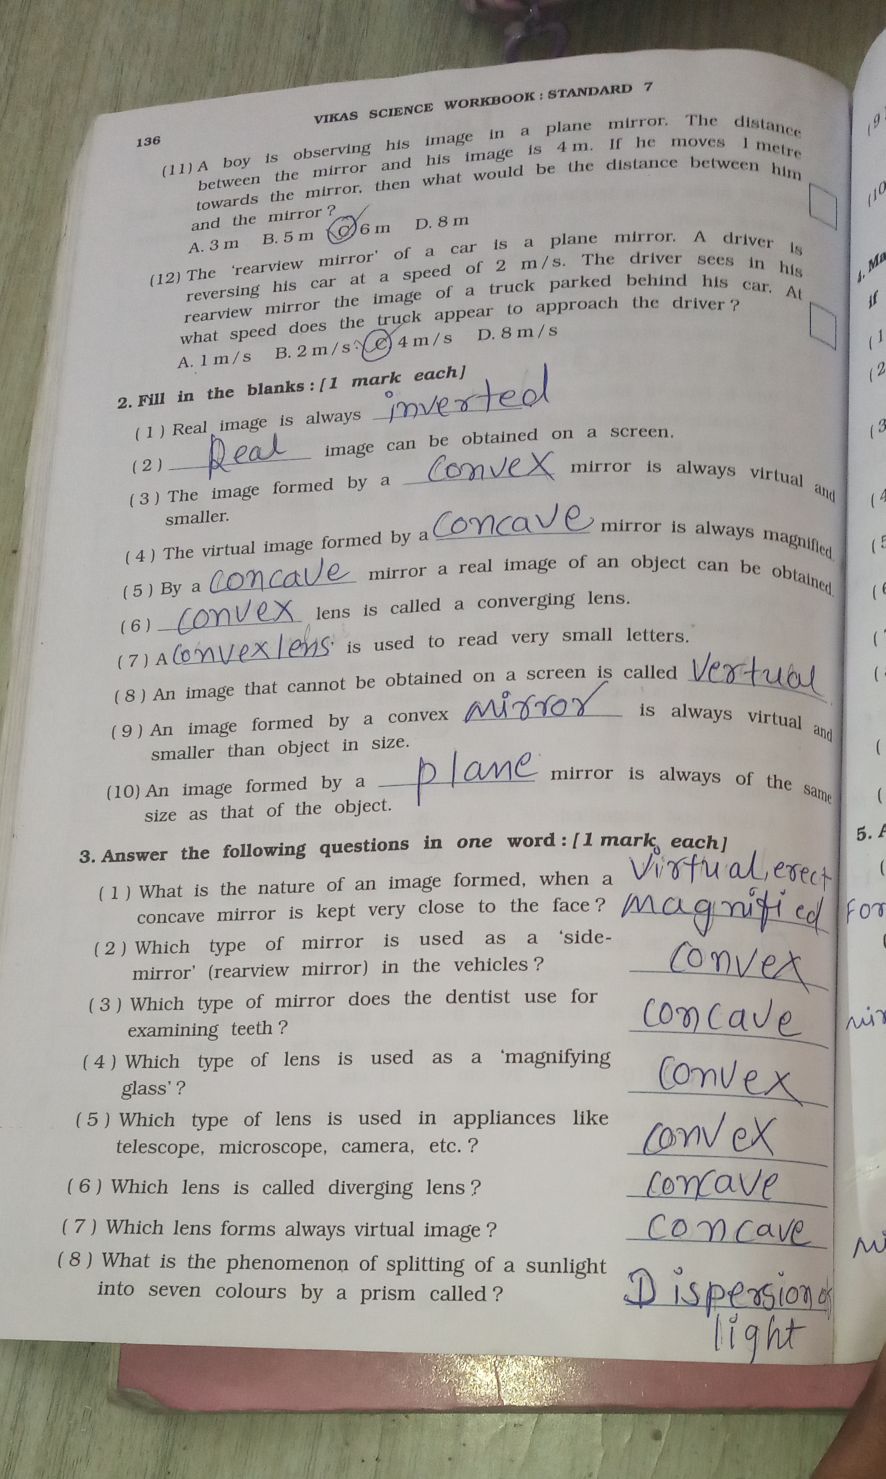 136
VIKAS SCIENCE WORKBOOK : STANDARD 7
(11) A boy is observing his image in a plane mirror. The distance
between the mirror and his image is 4 m. If he moves 1 metre
towards the mirror, then what would be the distance between him
and the mirror ?
A. 3 m B. 5 m C. 6 m D. 8 m
(12) The 'rearview mirror' of a car is a plane mirror. A driver is
reversing his car at a speed of 2 m/s. The driver sees in his
rearview mirror the image of a truck parked behind his car. At
what speed does the truck appear to approach the driver ?
A. 1 m/s B. 2 m/s C 4 m/s D. 8 m/s
2. Fill in the blanks : [1 mark each]
(1) Real image is always inverted
(2) Real image can be obtained on a screen.
(3) The image formed by a convex mirror is always virtual and
smaller.
(4) The virtual image formed by a concave mirror is always magnified.
(5) By a concave mirror a real image of an object can be obtained.
(6) convex lens is called a converging lens.
(7) A convex lens is used to read very small letters.
(8) An image that cannot be obtained on a screen is called vertual
(9) An image formed by a convex mirror is always virtual and
smaller than object in size.
(10) An image formed by a plane mirror is always of the same
size as that of the object.
3. Answer the following questions in one word : [1 mark each]
(1) What is the nature of an image formed, when a Virtual, erect
concave mirror is kept very close to the face ? magnified
(2) Which type of mirror is used as a 'side-
mirror' (rearview mirror) in the vehicles ? convex
(3) Which type of mirror does the dentist use for
examining teeth ? concave
(4) Which type of lens is used as a 'magnifying
glass' ? convex
(5) Which type of lens is used in appliances like
telescope, microscope, camera, etc. ? convex
(6) Which lens is called diverging lens ? concave
(7) Which lens forms always virtual image ? concave
(8) What is the phenomenon of splitting of a sunlight
into seven colours by a prism called ? Dispersion of
light